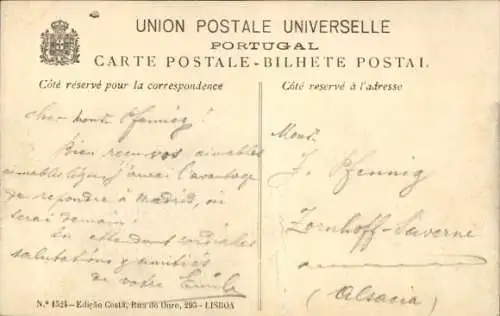 UNION POSTALE UNIVERSELLE
PORTUGAL
CARTE POSTALE-BILHETE POSTAL
Côté réservé pour la correspondence
Côté reservé à l'adresse
cher Mons. Pfennig!
Bien reçu vos aimables
aimables j'aurai l'avantage
de repondre à Madrid, où
serai demain!
En attendant cordiales
salutations & amitiés
de votre Emile
Mons.
J. Pfennig
Zornhoff-Saverne
(Alsacia)
N.º 1524 - Edição Costa, Rua do Ouro, 295 - LISBOA